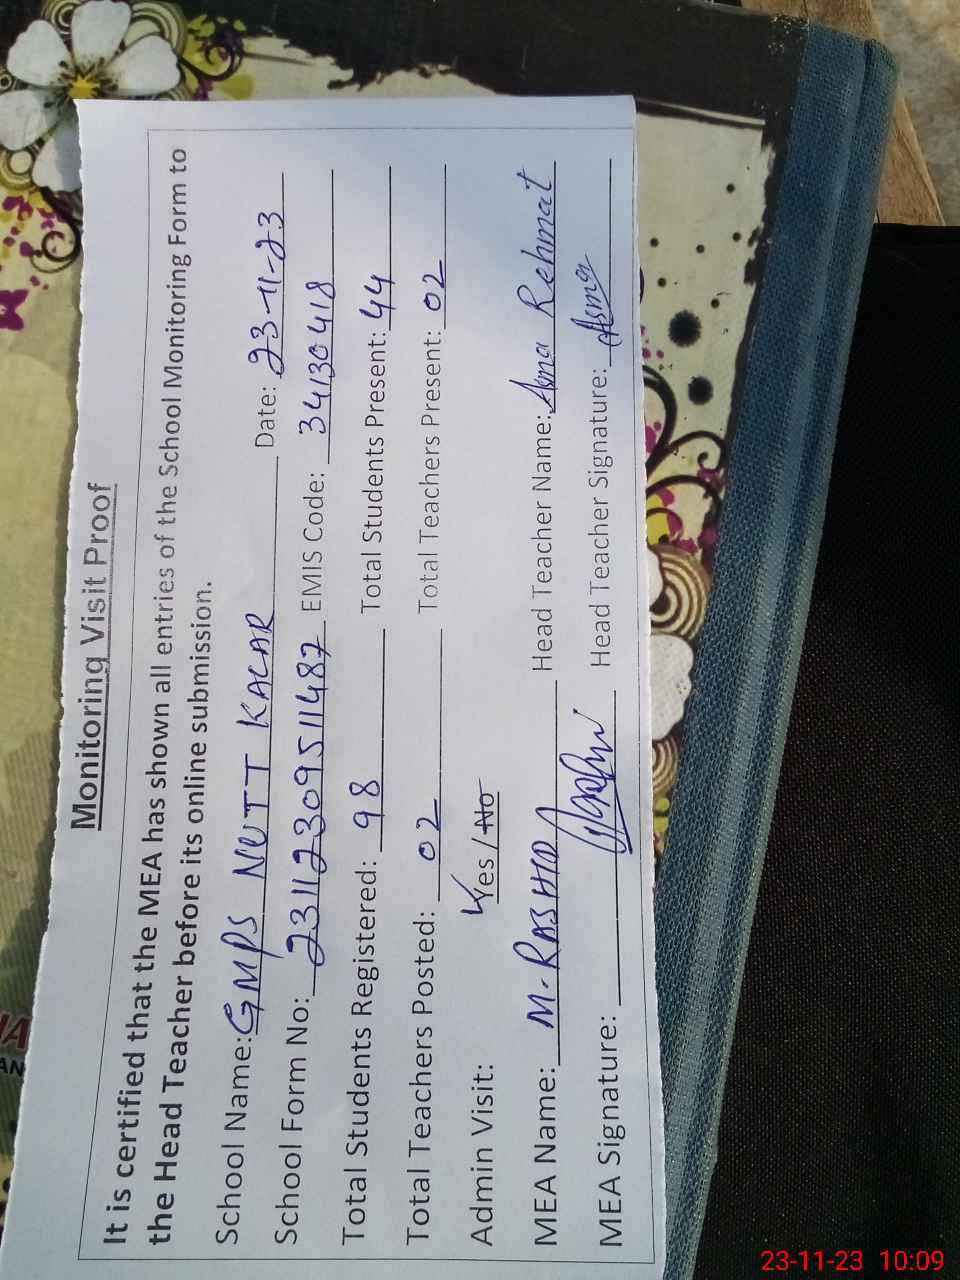 Monitoring Visit Proof
It is certified that the MEA has shown all entries of the School Monitoring Form to
the Head Teacher before its online submission.
School Name: GMPS NUTT KALAR Date: 23-11-23
School Form No: 23112309511487 EMIS Code: 34130418
Total Students Registered: 98 Total Students Present: 44
Total Teachers Posted: 02 Total Teachers Present: 02
Admin Visit: Yes / No
MEA Name: M. RASHID Head Teacher Name: Asma Rehmat
MEA Signature: Head Teacher Signature: Asma
23-11-23 10:09